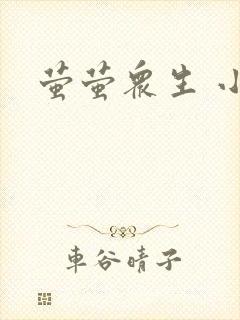 萤萤众生 小
車谷晴子